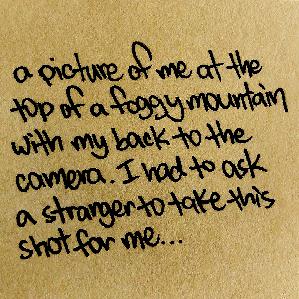 a picture of me at the
top of a foggy mountain
with my back to the
camera. I had to ask
a stranger to take this
shot for me...